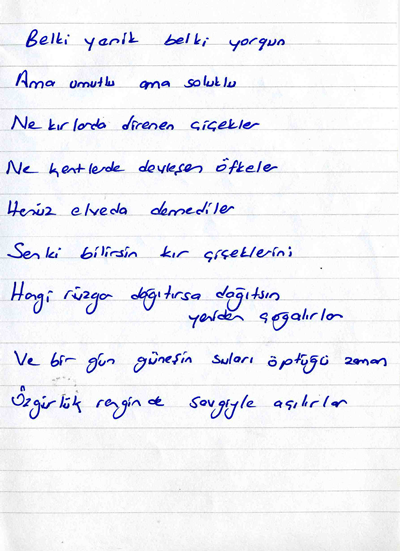 Belki yanik belki yorgun
Ama umutlu ama soluklu
Ne kırlarda direnen çiçekler
Ne kentlerde devleşen öfkeler
Henüz elveda demediler
Sen ki bilirsin kır çiçeklerini
Hangi rüzgar dağıtırsa dağıtsın
yeniden çoğalırlar
Ve bir gün güneşin suları öptüğü zaman
Özgürlük renginde sevgiyle açılırlar